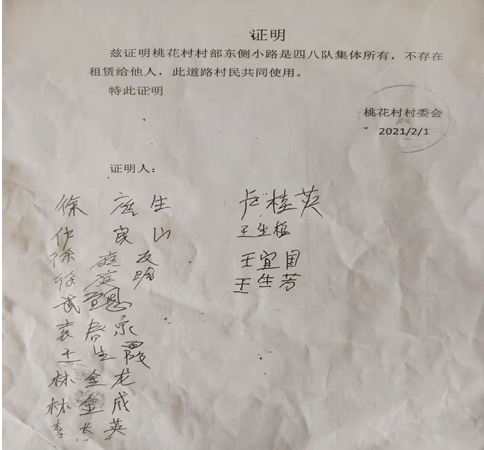 证明
兹证明桃花村村部东侧小路是四八队集体所有，不存在
租赁给他人，此道路村民共同使用。
特此证明
桃花村村委会
2021/2/1
证明人：
徐 生
卢桂英
山
王生
徐 友
王宜国
徐
王生芳
袁春
王生霞
林金龙
林金成
李长英